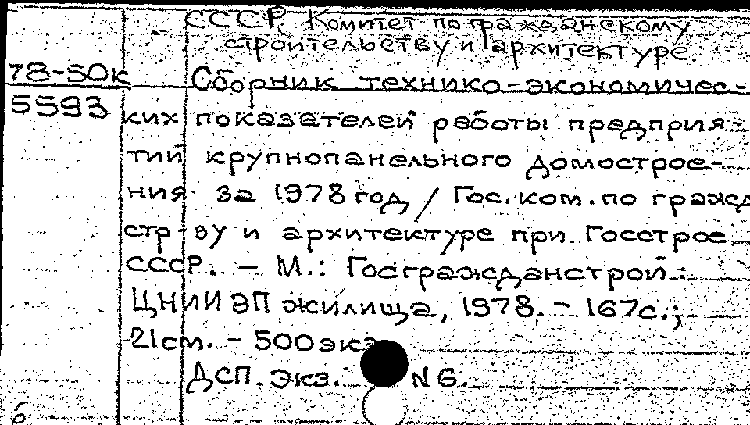 СССР. Комитет по гражданскому
строительству и архитектуре.
78-50к Сборник технико-экономичес-
5593 ких показателей работы предприя-
тий крупнопанельного домострое-
ния за 1978 год / Гос. ком. по гражд
стр-ву и архитектуре при Госстрое
СССР. - М.: Госгражданстрой.:
ЦНИИЭП жилища, 1978. - 167с.;
21см. - 500 экз
ДСП. Экз. N 6.